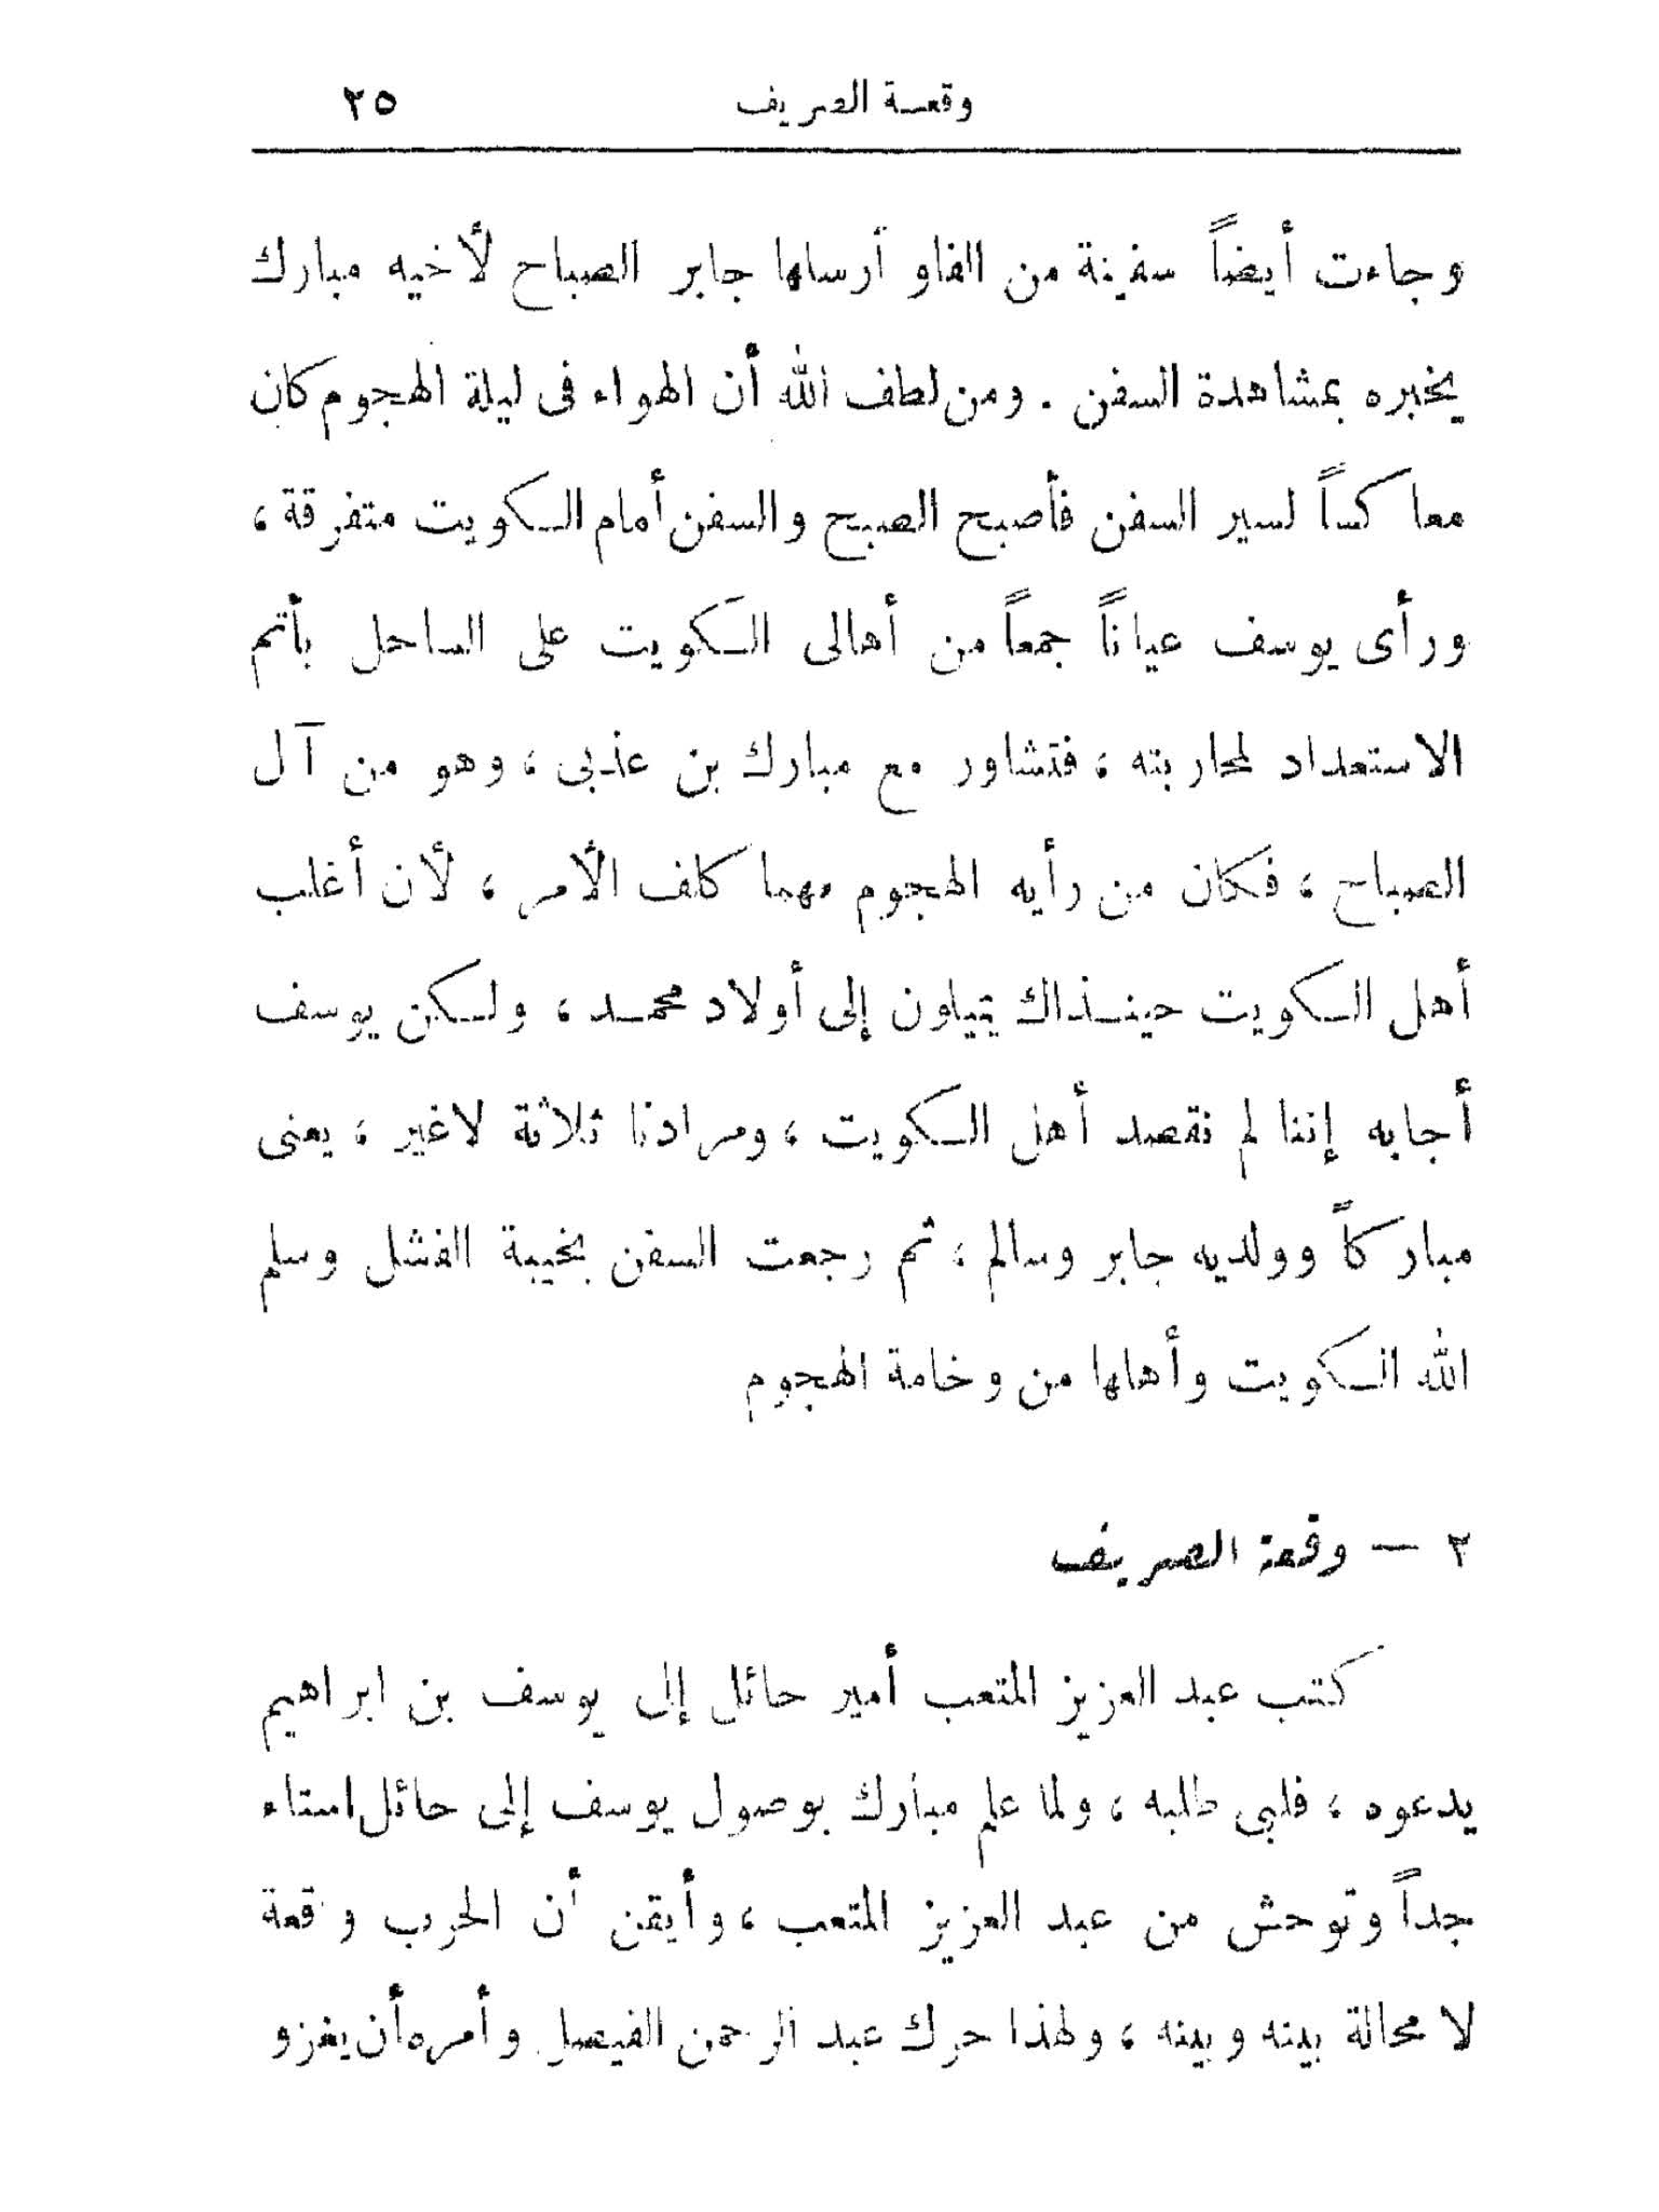 وقعة الصريف ٢٥
وجاءت أيضاً سفينة من الفاو أرسلها جابر الصباح لأخيه مبارك
يخبره بمشاهدة السفن . ومن لطف الله أن الهواء فى ليلة الهجوم كان
معاكساً لسير السفن فأصبح الصبح والسفن أمام الكويت متفرقة ،
ورأى يوسف عياناً جمعاً من أهالى الكويت على الساحل بأتم
الاستعداد لمحاربته ، فتشاور مع مبارك بن عذبى ، وهو من آل
الصباح ، فكان من رأيه الهجوم مهما كلف الأمر ، لأن أغلب
أهل الكويت حينذاك يميلون إلى أولاد محمد ، ولكن يوسف
أجابه إننا لم نقصد أهل الكويت ، ومرادنا ثلاثة لاغير ، يعنى
مباركاً وولديه جابر وسالم ، ثم رجعت السفن بخيبة الفشل وسلم
الله الكويت وأهلها من وخامة الهجوم
٢ — وقعة الصريف
كتب عبد العزيز المتعب أمير حائل إلى يوسف بن ابراهيم
يدعوه ، فلبى طلبه ، ولما علم مبارك بوصول يوسف إلى حائل استاء
جداً وتوحش من عبد العزيز المتعب ، وأيقن أن الحرب وقعة
لا محالة بينه وبينه ، ولهذا حرك عبد الرحمن الفيصل وأمره أن يغزو